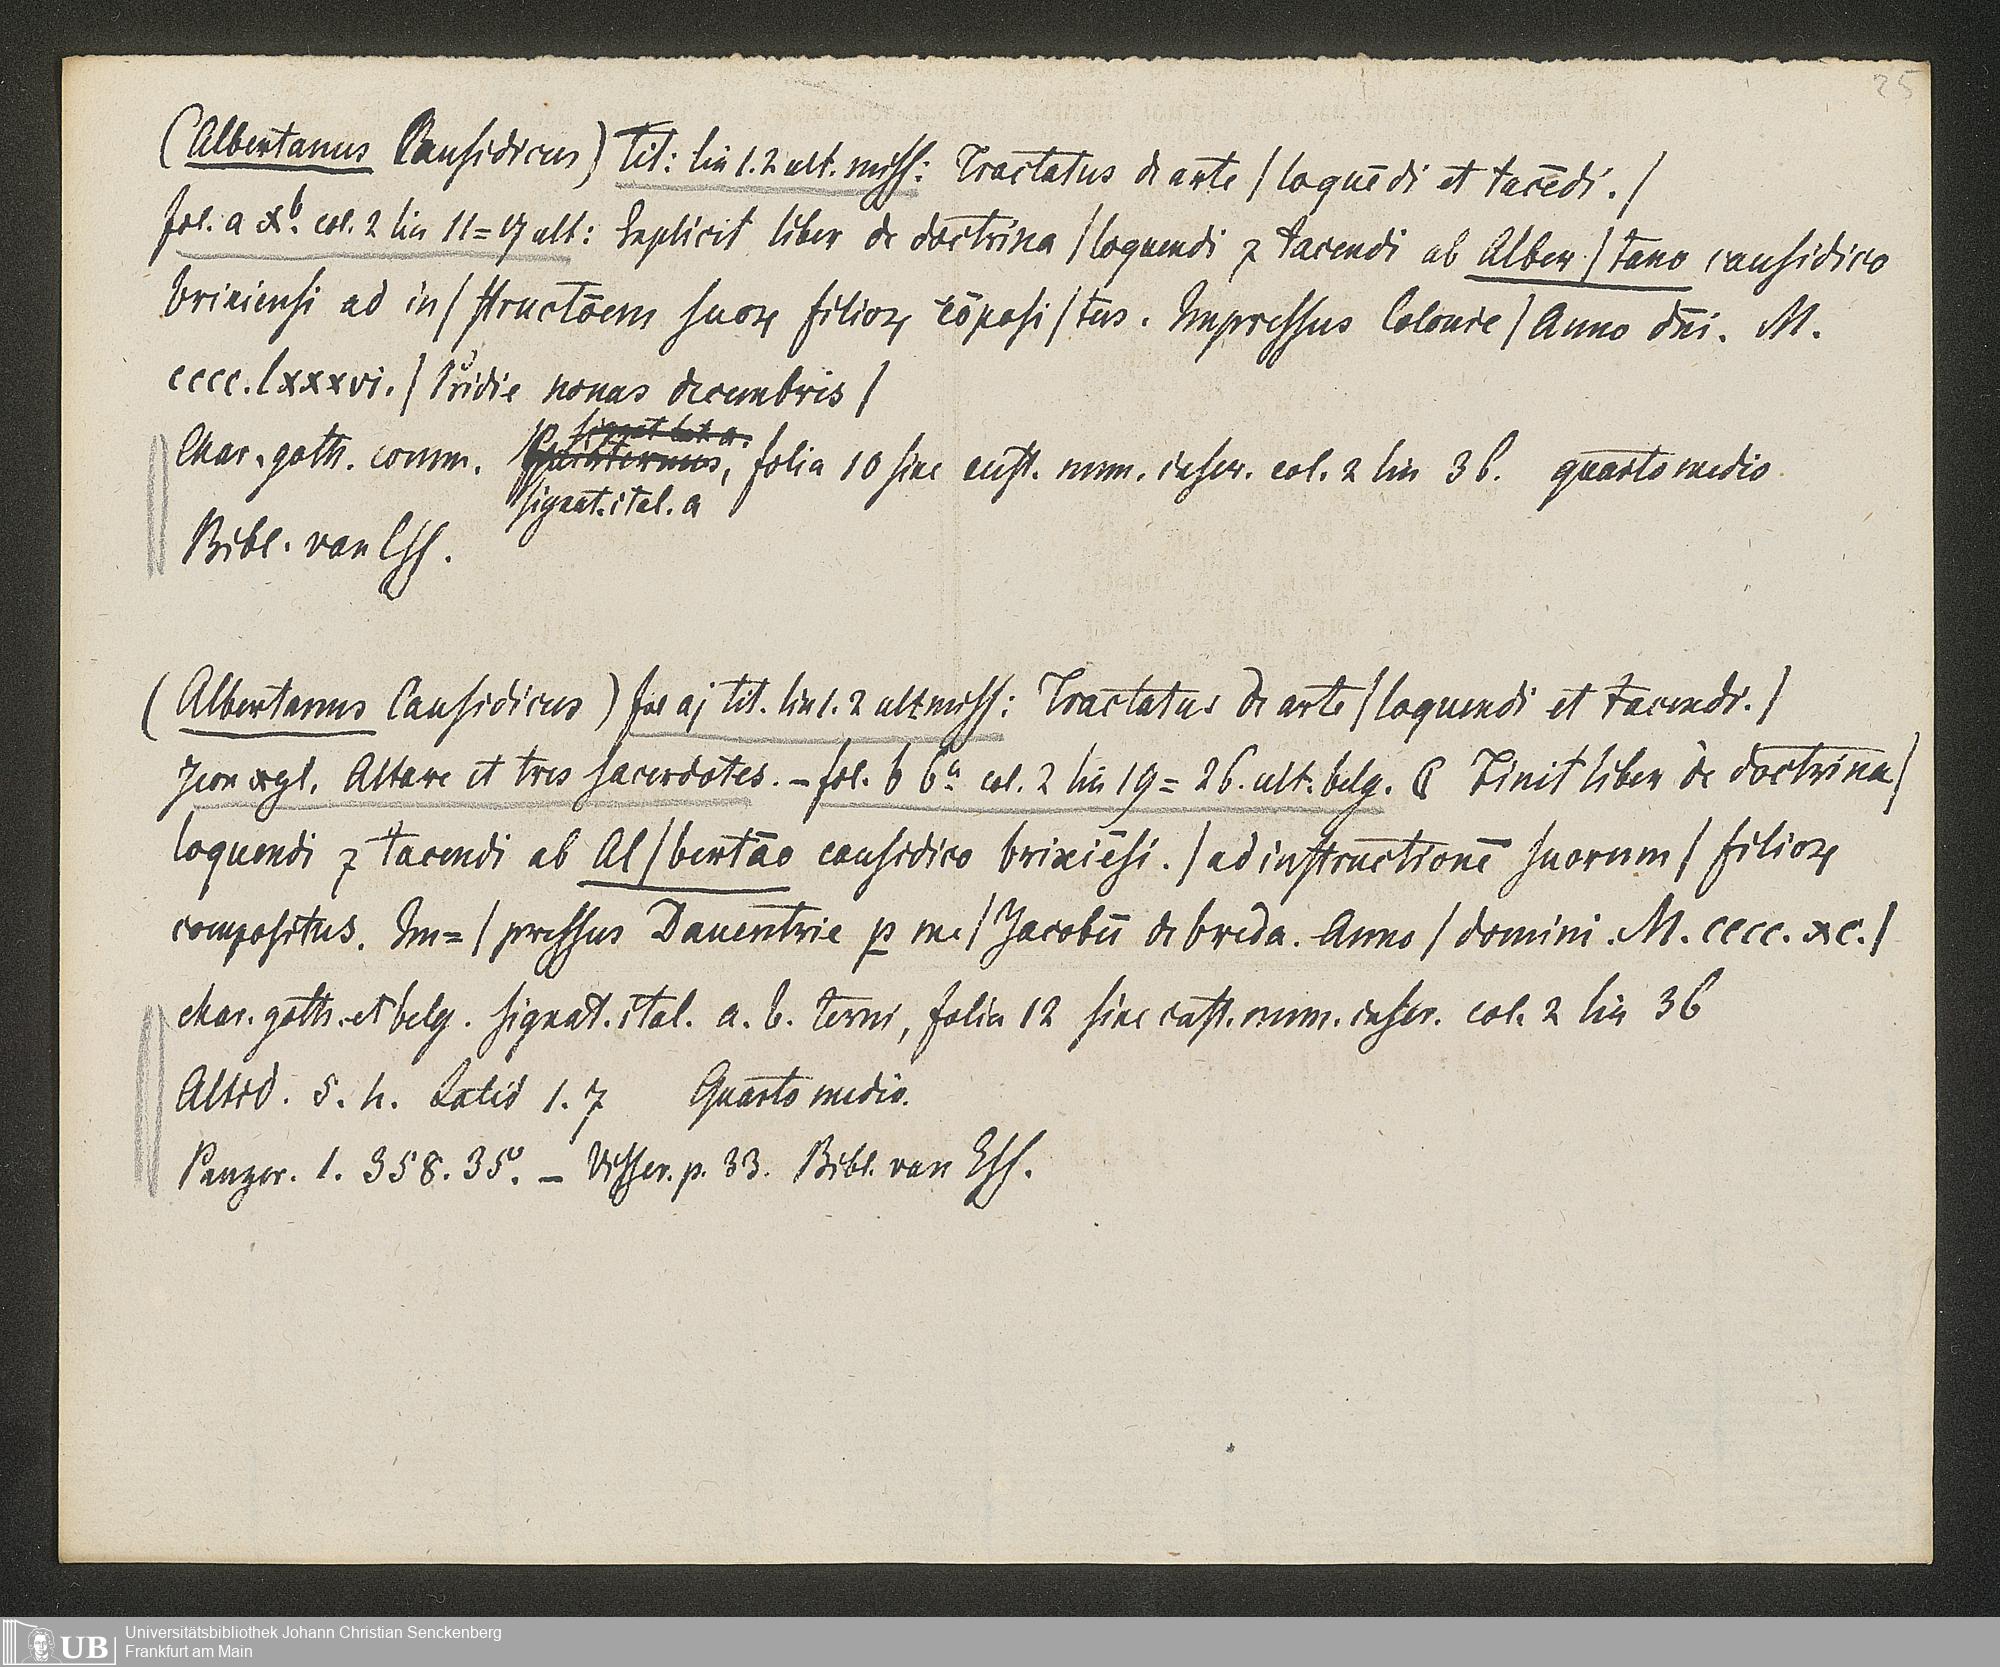 25
(Albertanus Causidicus) Tit: lin 1.2 alt. miss: Tractatus de arte / loquēdi et tacēdi. /
fol. a xb. col. 2 lin 11=17 alt: Explicit liber de doctrina / loquendi ⁊ tacendi ab Alber / tano causidico
brixiensi ad in / structōem suoꝝ filioꝝ cōposi / tus. Impressus Colonie / Anno dn̄i. M.
cccc.lxxxvi. / Pridie nonas decembris /
signat lit a.
Char. goth. comm. Quinternus, folia 10 sine cust. num. inscr. col. 2 lin 36. quarto medio
signat. ital. a
Bibl. van Ess.
(Albertanus Causidicus) fol aj tit. lin 1. 2 alt miss: Tractatus de arte / loquendi et tacendi. /
Icon xyl. Altare et tres sacerdotes. – fol. b 6a col. 2 lin 19=26. alt. belg. ¶ Finit liber de doctrina /
loquendi ⁊ tacendi ab Al / bertāo causidico brixiēsi. / ad instructionē suorum / filioꝝ
compositus. Im= / pressus Dauentrie ꝑ me / Jacobū de breda. Anno / domini. M. cccc. xc. /
char. goth. et belg. signat. ital. a. b. terni, folia 12 sine cust. num. inscr. col. 2 lin 36
Altid. 5. h. Latid 1. 7 Quarto medio.
Panzer. 1. 358. 35. – Visser. p. 33. Bibl. van Ess.
UB
Universitätsbibliothek Johann Christian Senckenberg
Frankfurt am Main